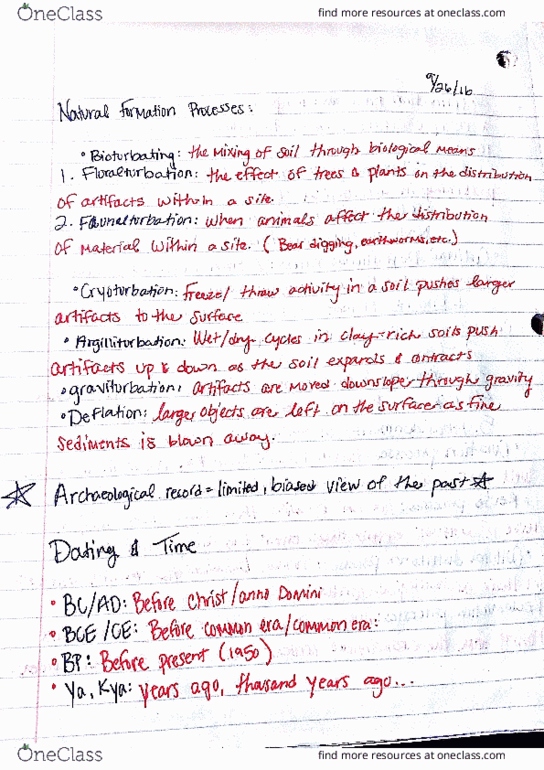 OneClass
find more resources at oneclass.com
9/26/16
Natural Formation Processes:
• Bioturbating: the mixing of soil through biological means
1. Floralturbation: the effect of trees & plants on the distribution
of artifacts within a site.
2. Faunalturbation: when animals affect the distribution
of material within a site. (Bear digging, earthworms, etc.)
• Cryoturbation: Freeze/ thaw activity in a soil pushes larger
artifacts to the surface
• Argilliturbation: Wet/dry cycles in clay-rich soils push
artifacts up & down as the soil expands & contracts
• graviturbation: artifacts are moved downslope through gravity
• Deflation: larger objects are left on the surface as fine
sediments is blown away.
☆ Archaeological record = limited, biased view of the past ☆
Dating & Time
• BC/AD: Before Christ/anno Domini
• BCE/CE: Before common era/common era:
• BP: Before present (1950)
• Ya, Kya: years ago, thousand years ago...
OneClass
find more resources at oneclass.com